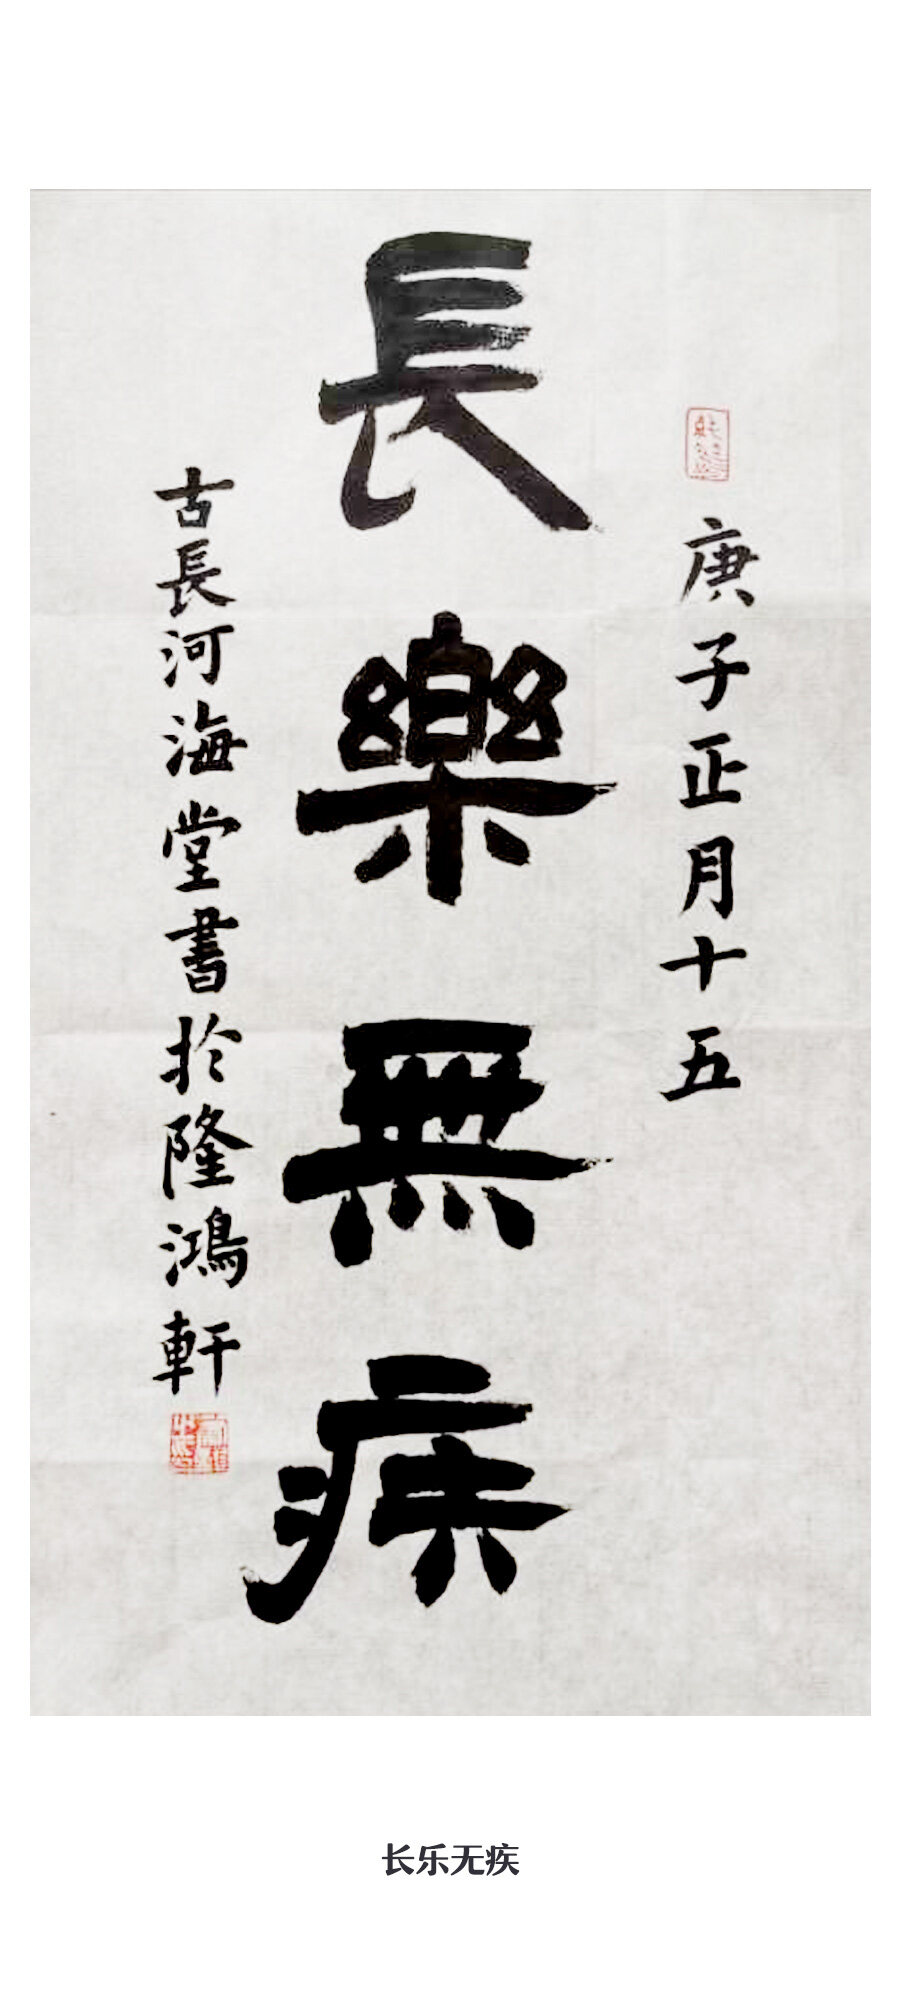 庚子正月十五
長樂無疾
古長河海堂書於隆鴻軒
长乐无疾